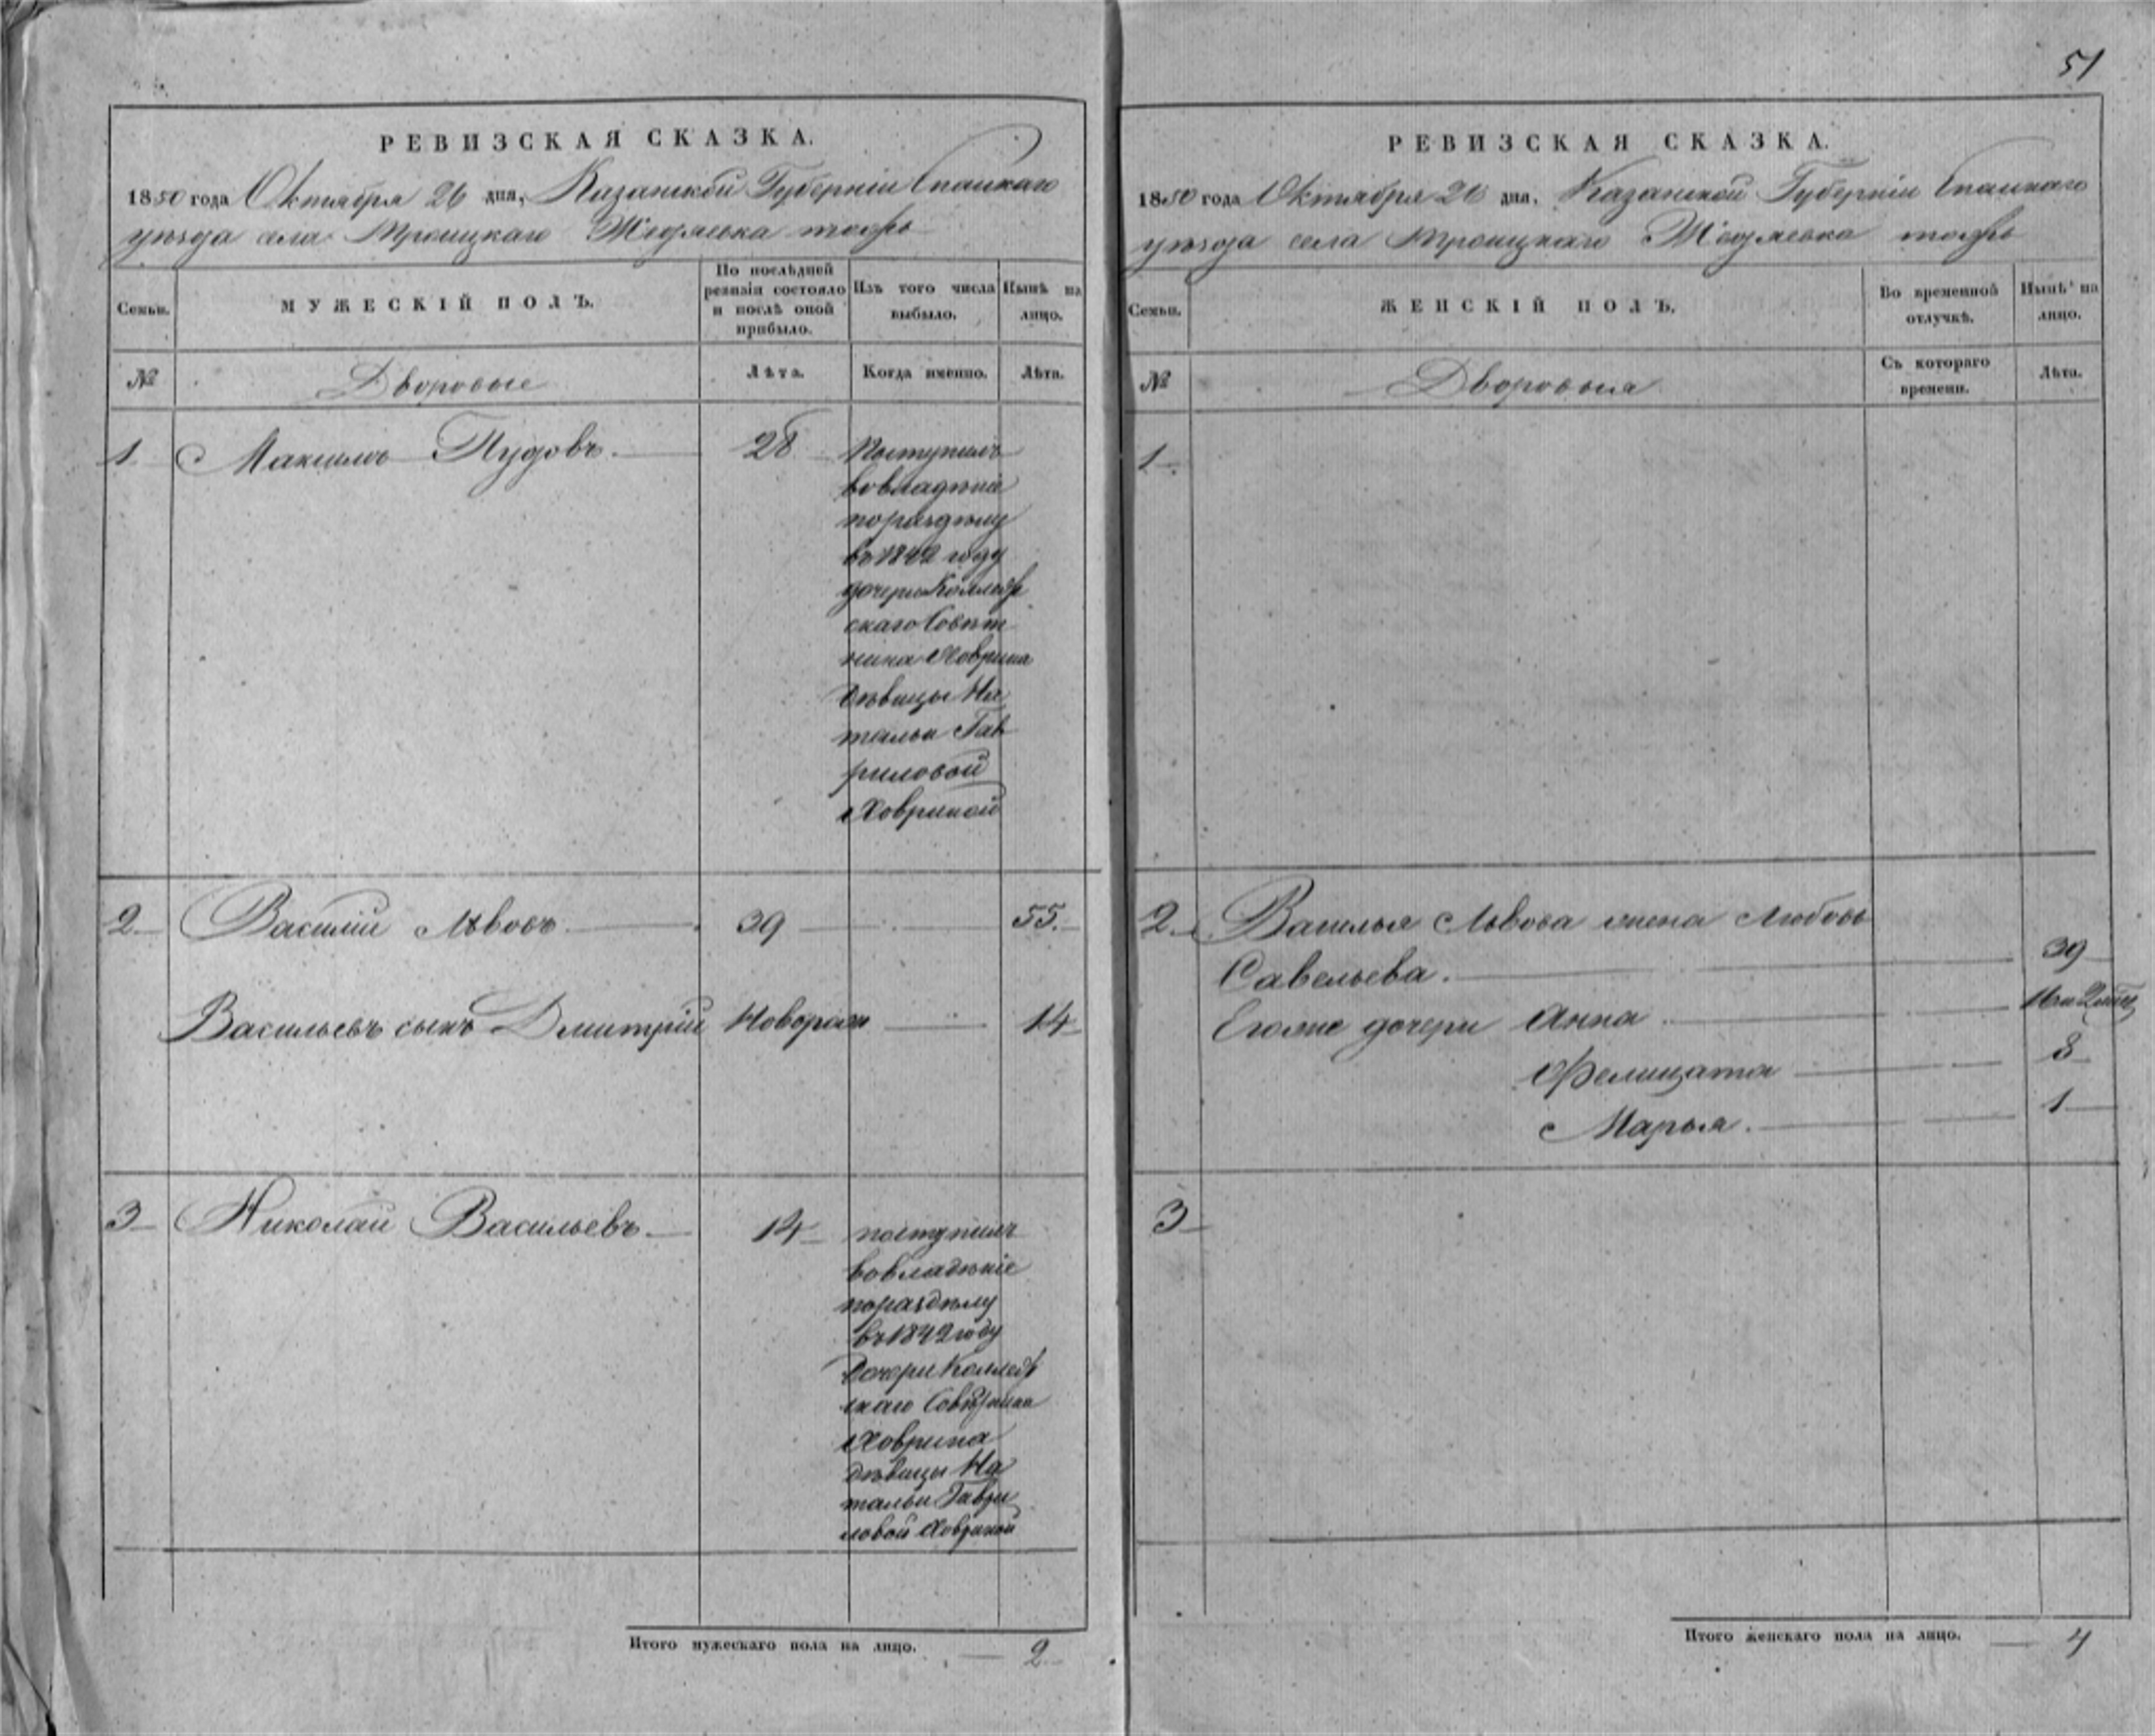 51
РЕВИЗСКАЯ СКАЗКА.
1850 года Октября 26 дня, Казанской Губерніи Спаскаго
уѣзда села Троицкаго тожъ
Семьи.
МУЖЕСКІЙ ПОЛЪ.
По послѣдней ревизіи состояло и послѣ оной прибыло.
Изъ того числа выбыло.
Нынѣ на лицо.
№
Дворовые
Лѣта.
Когда именно.
Лѣта.
1 Максимъ Пудовъ. 28 Поступилъ
во владѣніе
по раздѣлу
въ 1842 году
дочери Коллеж
скаго Совѣт
ника Ховрина
Дѣвицы На
тальи Гав
риловой
Ховриной
2 Василій Львовъ 39 55.
Васильевъ сынъ Дмитрій Новорож 14
3 Николай Васильевъ 14 поступилъ
во владѣніе
по раздѣлу
въ 1842 году
Дочери Коллеж
скаго Совѣтника
Ховрина
дѣвицы На
тальи Гаври
ловой Ховриной
Итого мужескаго пола на лицо. 2
РЕВИЗСКАЯ СКАЗКА.
1850 года Октября 26 дня, Казанской Губерніи Спаскаго
уѣзда села Троицкаго тожъ
Семьи.
ЖЕНСКІЙ ПОЛЪ.
Во временной отлучкѣ.
Нынѣ на лицо.
№
Дворовыя
Съ котораго времени.
Лѣта.
1
2 Василья Львова жена Любовь
Савельева. 39
Егоже дочери Анна
Фелицата 8
Марья. 1
3
Итого женскаго пола на лицо. 4